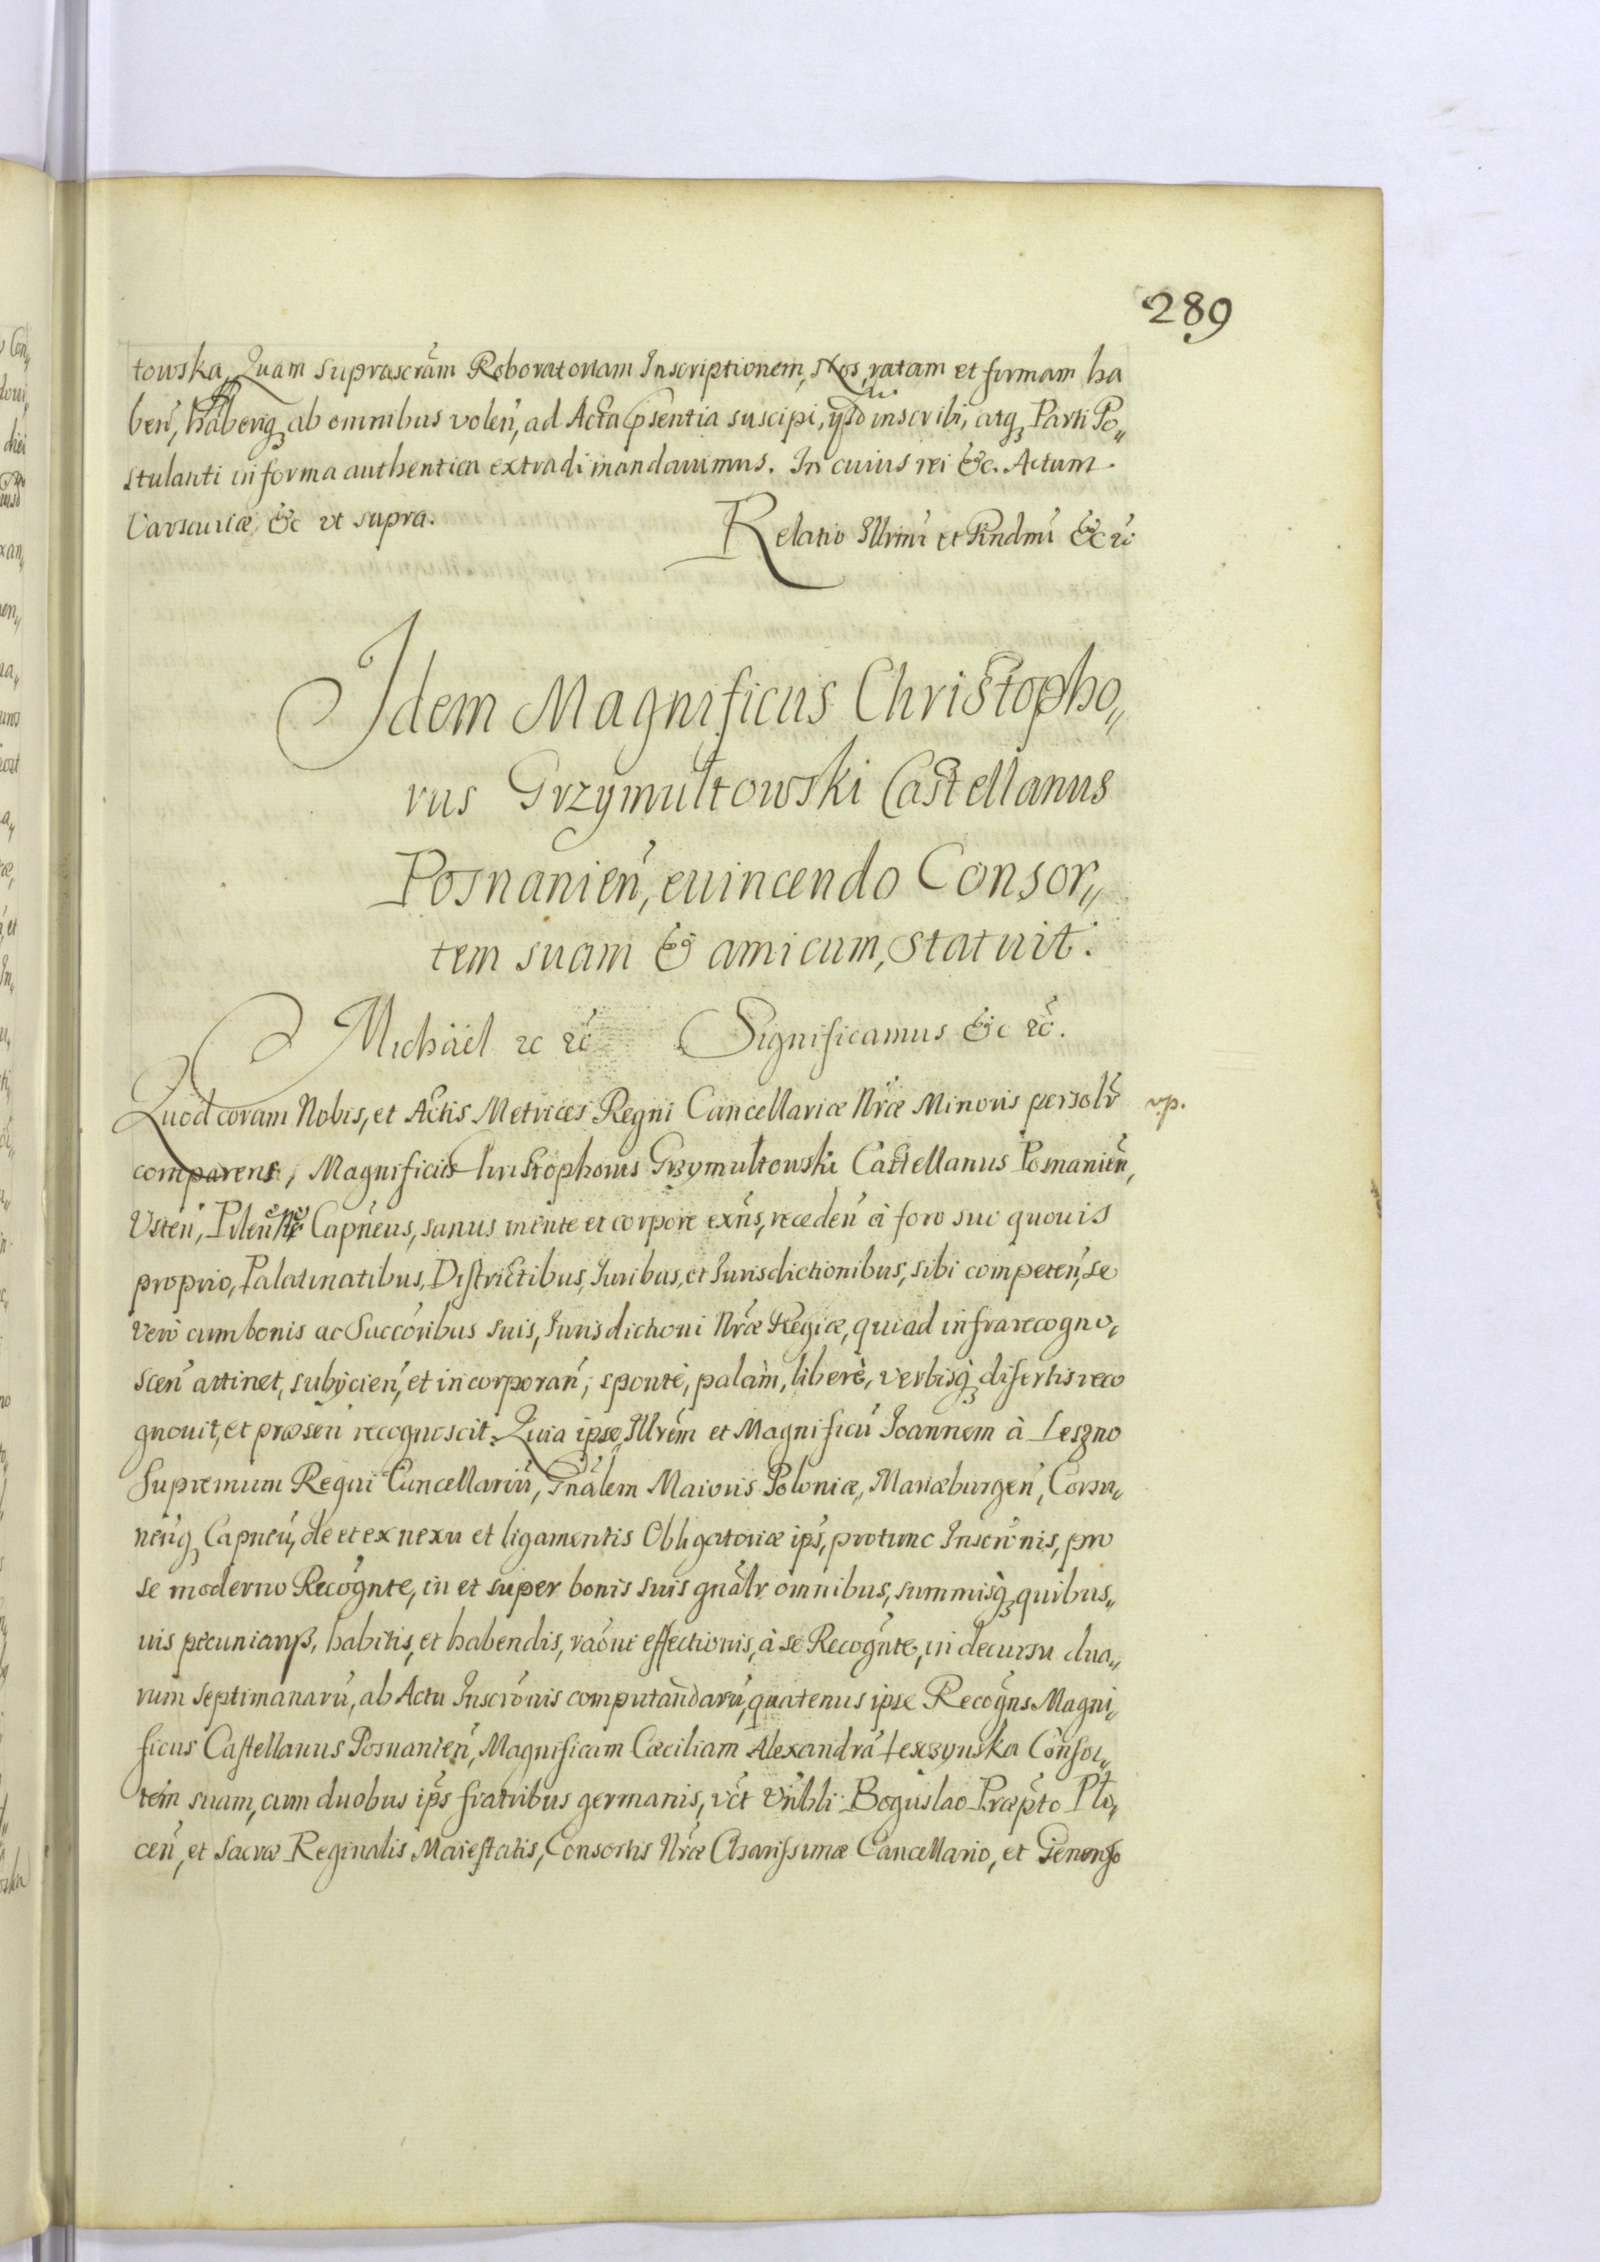 289
towska, Quam suprascr̃am Roboratoriam Inscriptionem, Nos, ratam et firmam ha
ben̄, haberiq̃ ab omnibus volen̄, ad Acta p̃sentia suscipi, ijsd̃ inscribi, atq̃ Parti Po„
stulanti in forma authentica extradi mandauimus. In cuius rei &c. Actum
Varsauiæ &c vt supra.
Relatio Illrmi et Rndmi &c ꝛc̃
Idem Magnificus Christopho„
rus Grzymultowski Castellanus
Posnanien̄, euincendo Consor„
tem suam & amicum, statuit.
Michaël ꝛc ꝛc̃ Significamus &c ꝛc̃.
Quod coram Nobis, et Actis Metrices Regni Cancellariæ Nr̃æ Minoris personalr̃ vp.
comparens, Magnificus Christophorus Grzymultowski Castellanus Posnanien̄,
Vsten̄, Pilen̄ne Capn̄eus, sanus mente et corpore exn̄s, receden̄ à foro suo quouis
proprio, Palatinatibus, Districtibus, Iuribus, et Iurisdictionibus, sibi competen̄, se
vero cum bonis ac Succoribus suis, Iurisdictioni Nr̃æ Regiæ, qui ad infra recogno„
scen̄ attinet, subijcien̄, et incorporan̄, sponte, palàm, liberè, verbisq̃ disertis reco
gnouit, et præsen̄ recognoscit. Quia ipse, Illr̃em et Magnificū Joannem à Leszno
Supremum Regni Cancellariū, Gn̄alem Maioris Poloniæ, Mariæburgen̄, Corsu„
nen̄q̃ Capneū, de et ex nexu et ligamentis Obligatoriæ ips̄, protunc Inscr̃onis, pro
se moderno Recogn̄te, in et super bonis suis gn̄alr̃ omnibus, summisq̃ quibus„
uis pecuniarys, habitis, et habendis, raõne effectionis, à se Recogn̄te, in decursu dua„
rum septimanarū, ab Actu Inscr̃onis computandarū, quatenus ipse Recogn̄s Magni„
ficus Castellanus Posnanien̄, Magnificam Cæciliam Alexandrā Lesczynska Consor„
tem suam, cum duobus ips̄ fratribus germanis, vc̃t Vn̄bli Boguslao Præp̃to Plo„
cen̄, et Sacræ Reginalis Maiestatis, Consortis Nr̃æ Charissimæ Cancellario, et Generoso